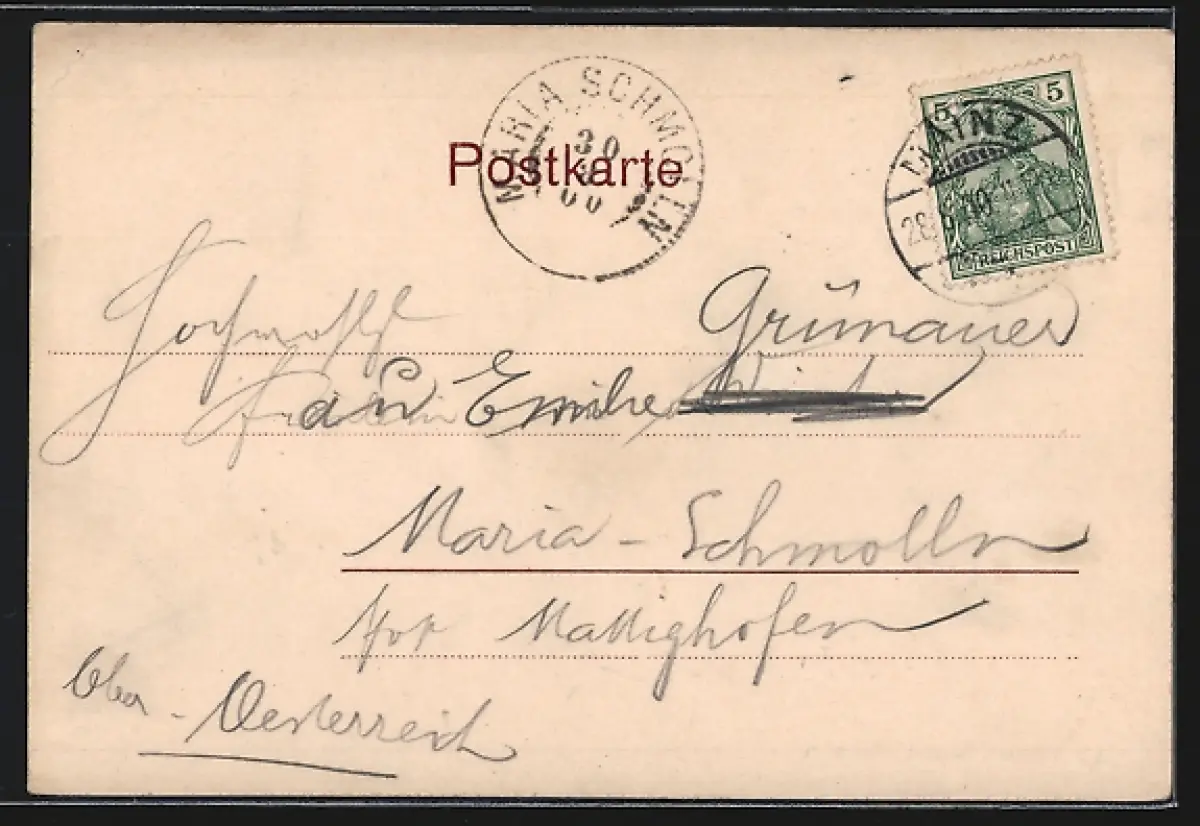 Postkarte
MARIA SCHMOLLN
30
00
5 5
MAINZ
28
REICHSPOST
Grünauer
Emilie
Maria - Schmolln
Post Mattighofen
Ober - Oesterreich